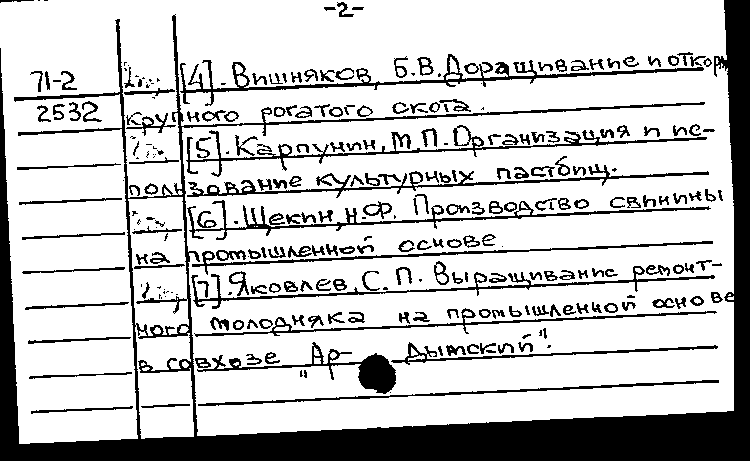 -2-
71-2 [4]. Вишняков, Б.В. Доращивание и откорм
2532 крупного рогатого скота.
[5]. Карпунин, М.П. Организация и ис-
пользование культурных пастбищ.
[6]. Щекин, Н.Ф. Производство свинины
на промышленной основе.
[7]. Яковлев, С.П. Выращивание ремонт-
ного молодняка на промышленной основе
в совхозе „Ар- дымский".